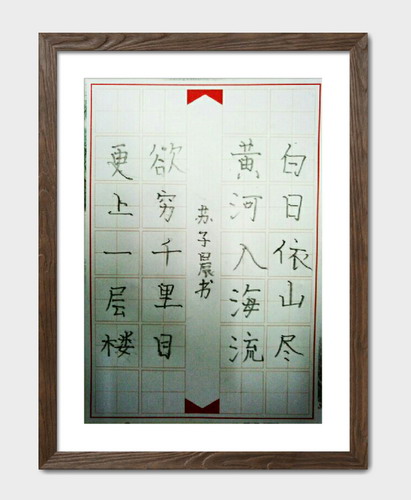 白日依山尽
黄河入海流
苏子晨书
欲穷千里目
更上一层楼